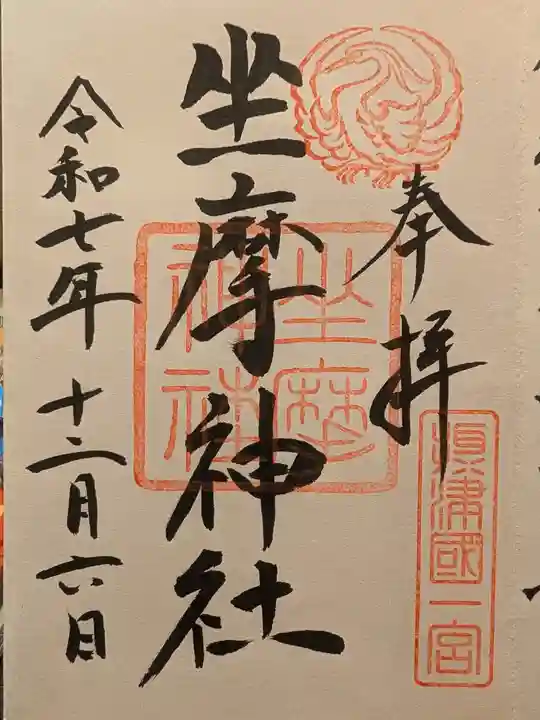 奉拝
摂津國一宮
坐摩神社
坐摩神社
令和七年 十二月六日